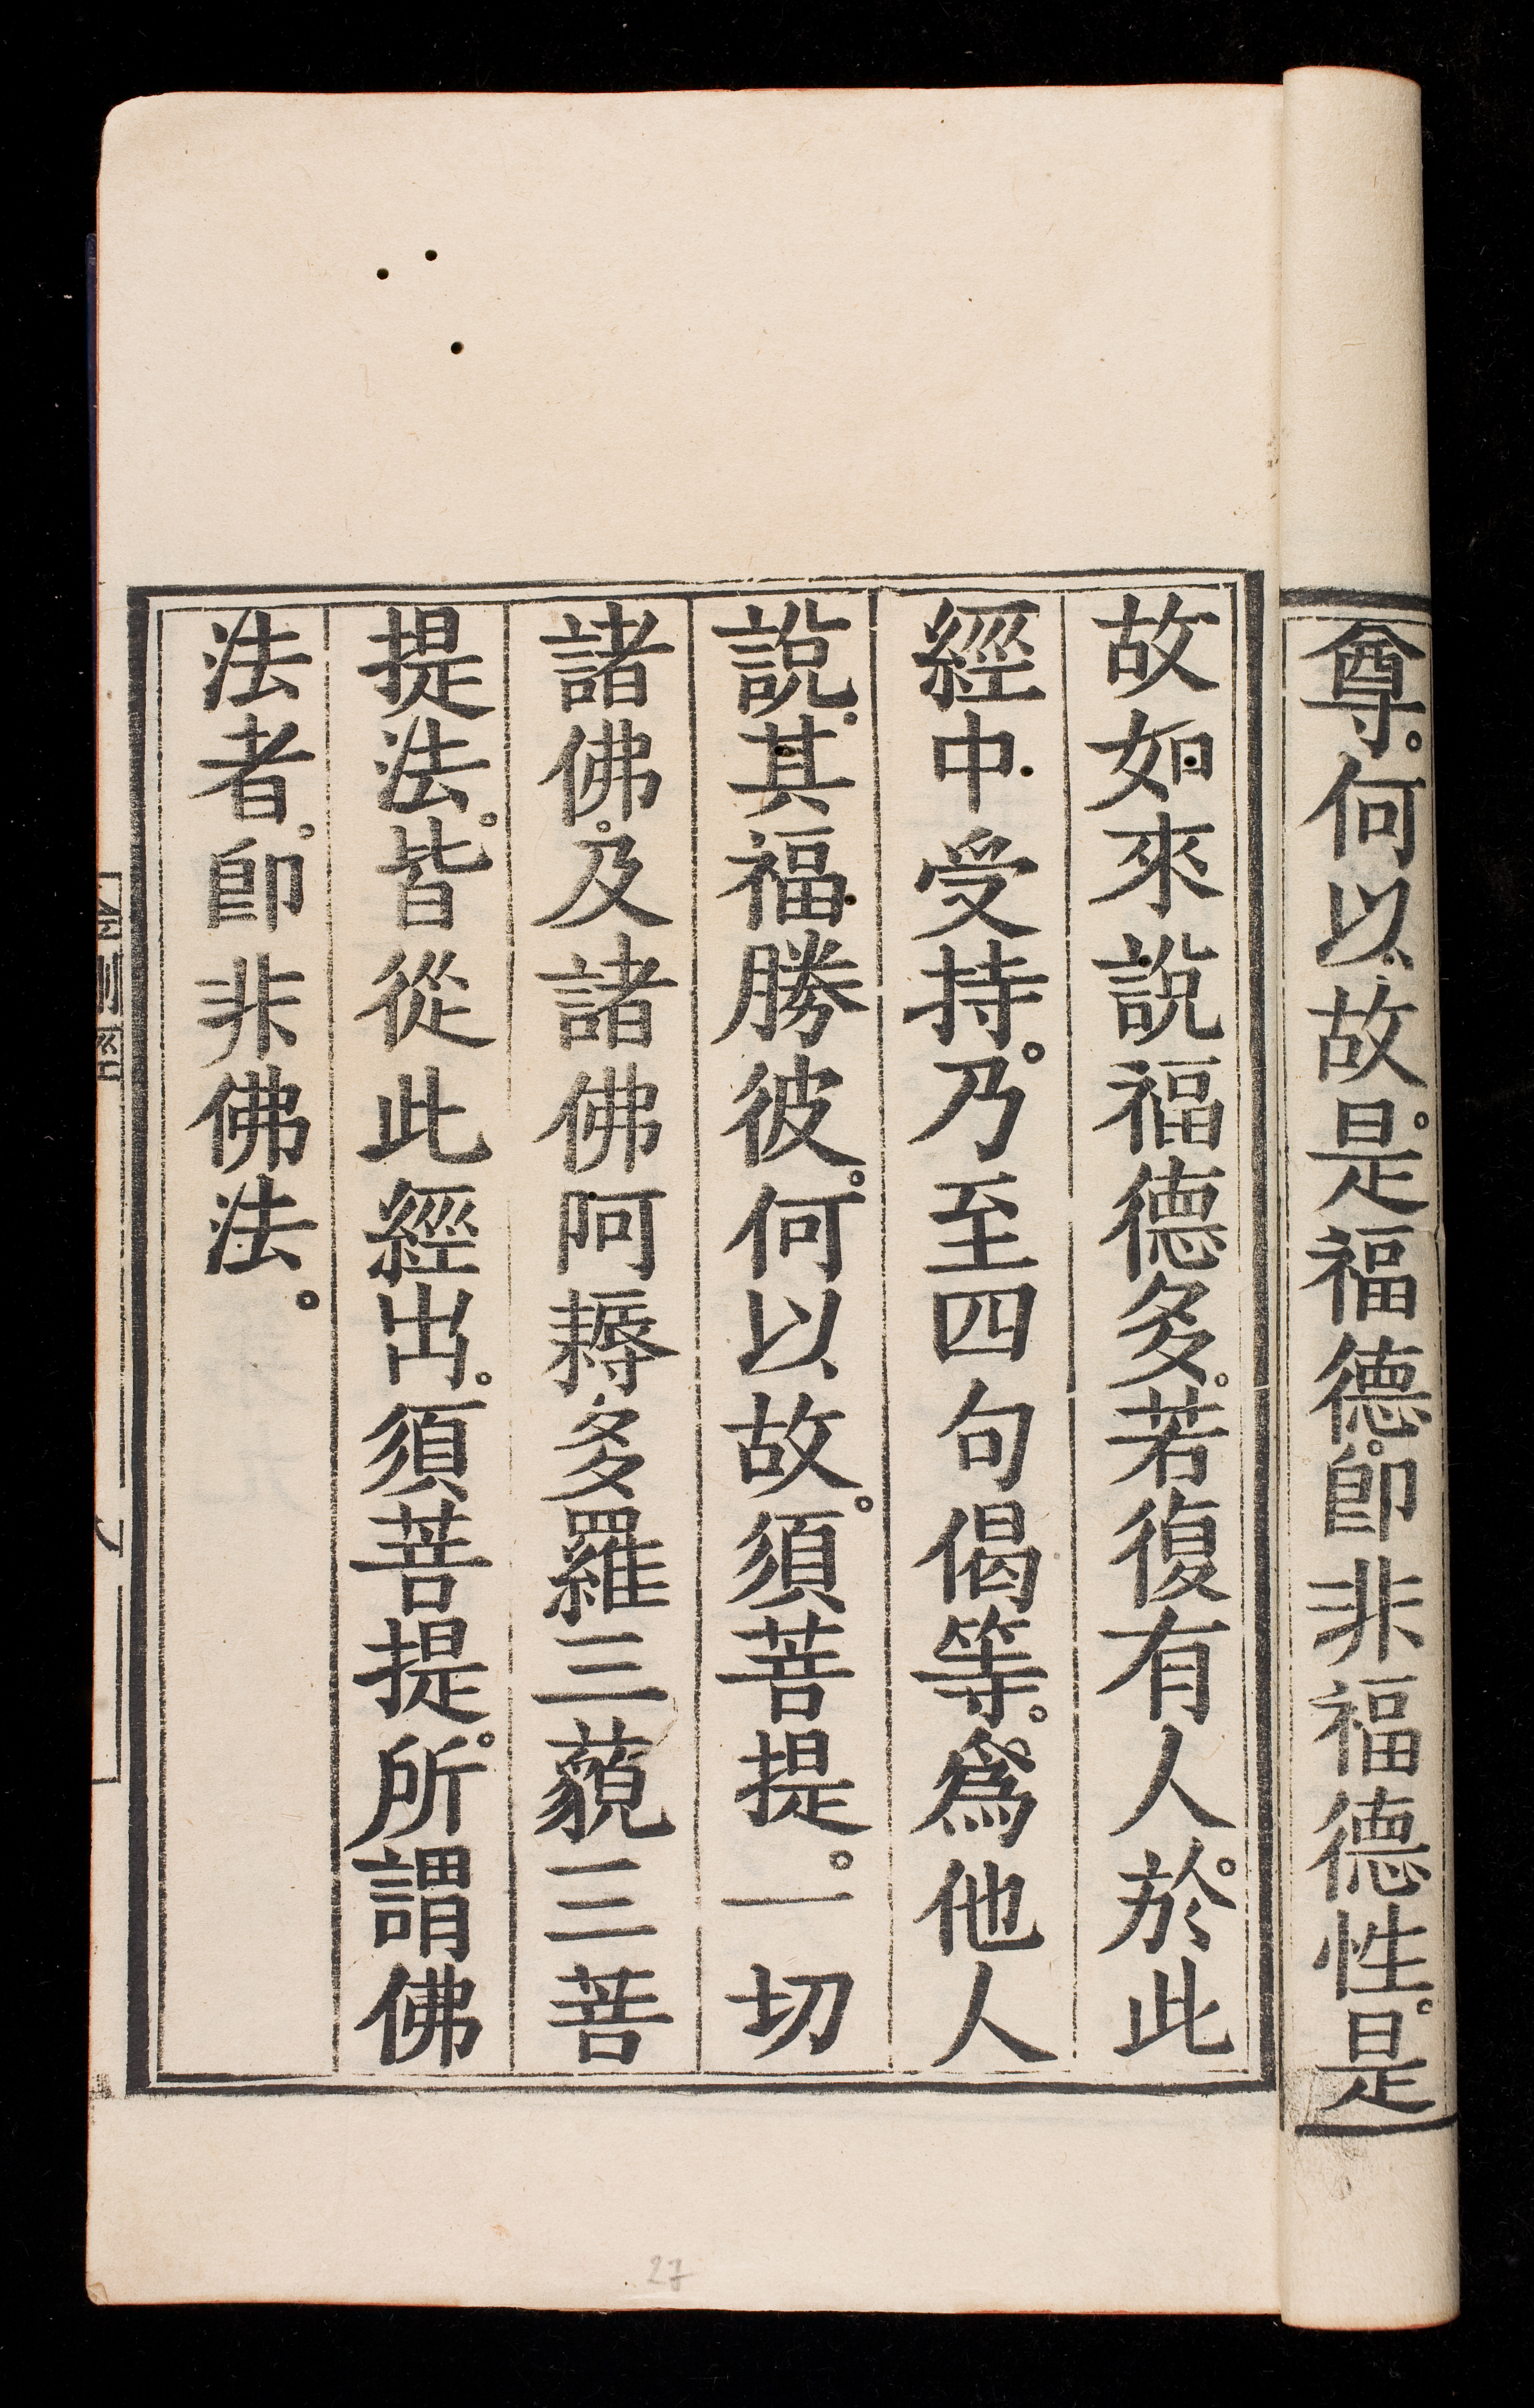 尊。何以故。是福德。卽非福德性。是
故如來說福德多。若復有人。於此
經中受持。乃至四句偈等。爲他人
說。其福勝彼。何以故。須菩提。一切
諸佛。及諸佛阿耨多羅三藐三菩
提法。皆從此經出。須菩提。所謂佛
法者。卽非佛法。
27